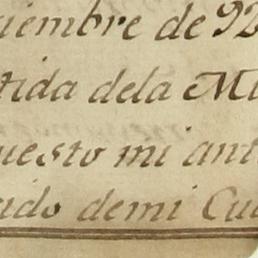 iembre de 92
tida dela Mi
uesto mi ant
ido demi Cu